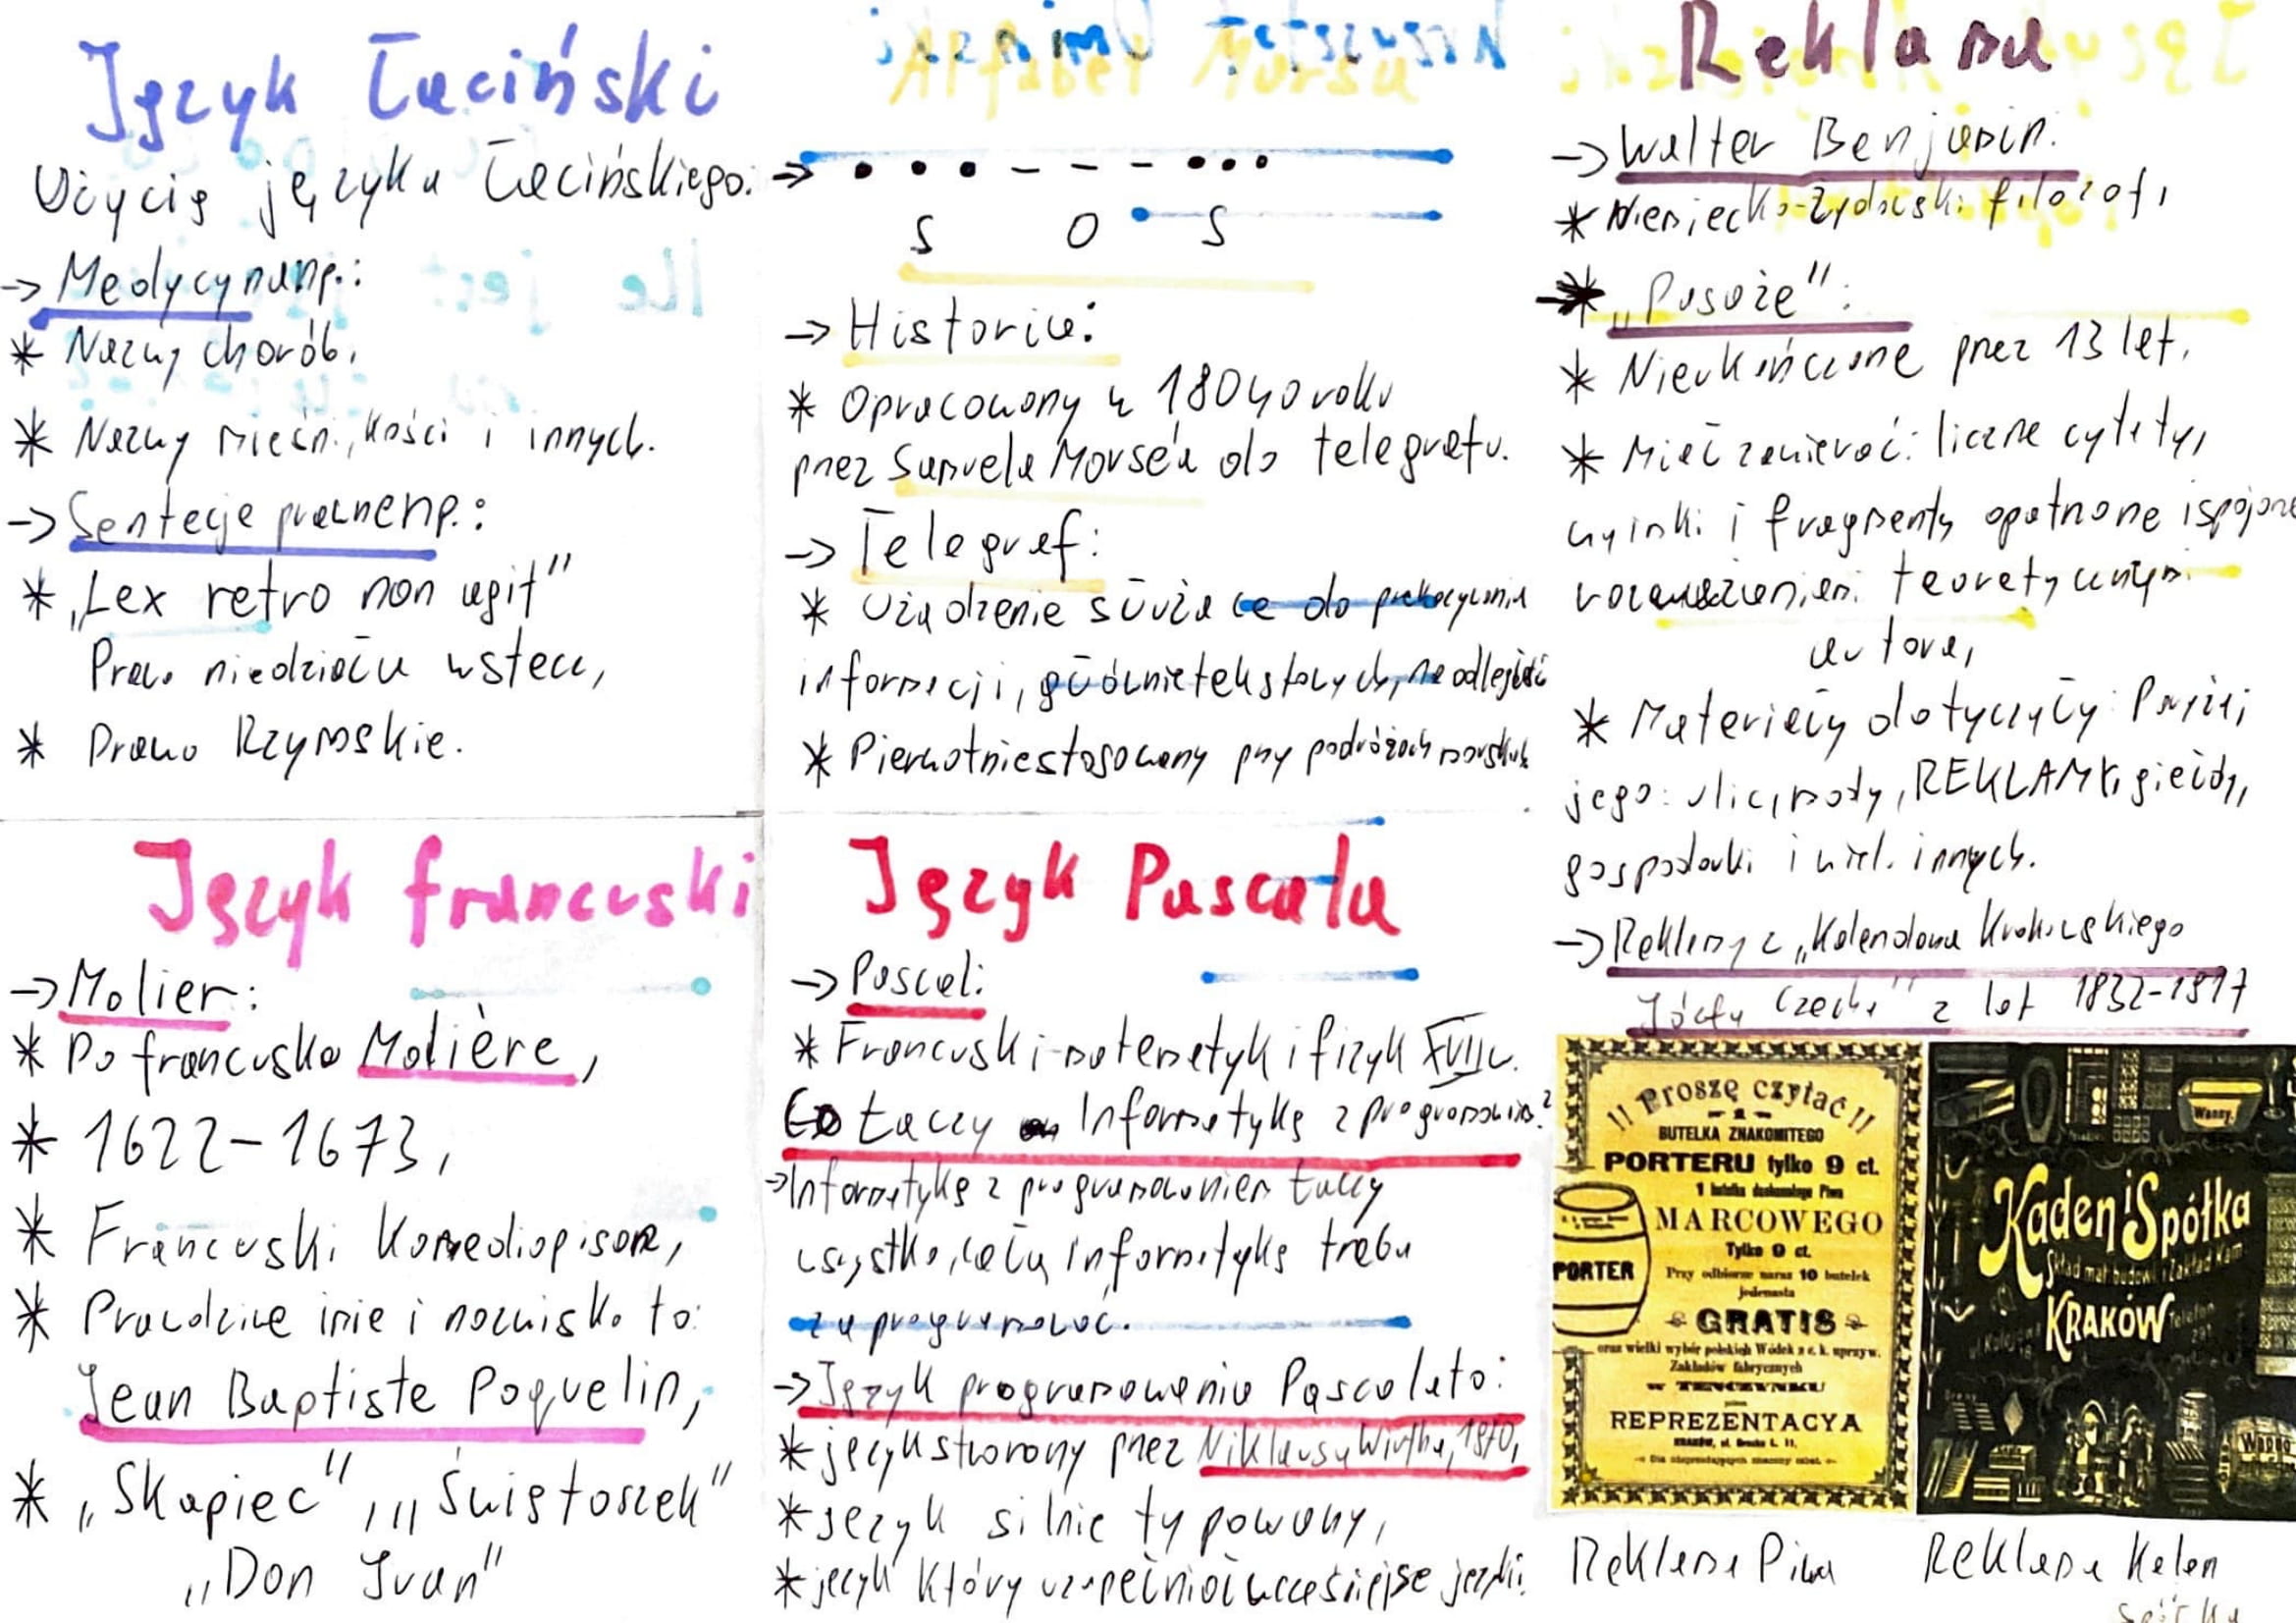 Język Łaciński
Użycię języka Łacińskiego:
-> Medycyna np.:
* Nazwy chorób,
* Nazwy mięśn., kości i innych.
-> Sentecje prawne np.:
* „Lex retro non agit”
Prawo niedziała wstecz,
* Prawo Rzymskie.
Język francuski
-> Molier:
* Po francusko Molière,
* 1622-1673,
* Francuski Komediopisarz,
* Prawdziwe imie i nazwisko to:
Jean Baptiste Poquelin,
* „Skąpiec”, „Świętoszek”
„Don Juan”
Alfabet Morsa
-> • • • – – – • • •
S O S
-> Historia:
* Opracowany w 1840 roku
przez Samuela Morse'a do telegrafu.
-> Telegraf:
* Użądzenie słuźące do
informacji, głównie tekstowych, na odległość
* Pierwotnie stosowany przy podróżach morskich
Język Pascala
-> Pascal:
* Francuski-matematyk i fizyk XVII w.
Co Łączy Informatykę z programowan.?
-> Informatykę z programowaniem Łączy
wszystko, całą informatykę trzeba
zaprogramować.
-> Język programowania Pascala to:
* język stworony przez Niklausa Wirtha, 1970,
* język silnie typowany,
* język który uzupełniał wcześniejsze języki.
Reklama
-> Walter Benjamin:
* Niemiecko-Żydowski filozof,
* „Pasaże”:
* Nieukończone przez 13 lat,
* Miał zawierać: liczne cytaty,
wyimki i fragmenty opatrzone i spojone
teoretycznymi
autora,
* Materiały dotyczyły: Paryża,
jego: ulic, mody, REKLAMY, giełdy,
gospodarki i wiel. innych.
-> Reklamy z „Kalendarza Krakowskiego
Józefa Czecha” z lat 1832-1917
!! Proszę czytać !!
1
BUTELKA ZNAKOMITEGO
PORTERU tylko 9 ct.
1 butelka doskonałego Piwa
MARCOWEGO
Tylko 9 ct.
Przy odbiorze naraz 10 butelek
jedenasta
GRATIS
oraz wielki wybór polskich Wódek z c. k. uprzyw.
Zakładów fabrycznych
w TENCZYNKU
REPREZENTACYA
PORTER
Wanny.
Kaden i Spółka
Skład mat. budow. i Zakład Kam.
KRAKÓW
Telefon
Wapno
Reklama Piwa
Reklama Kaden